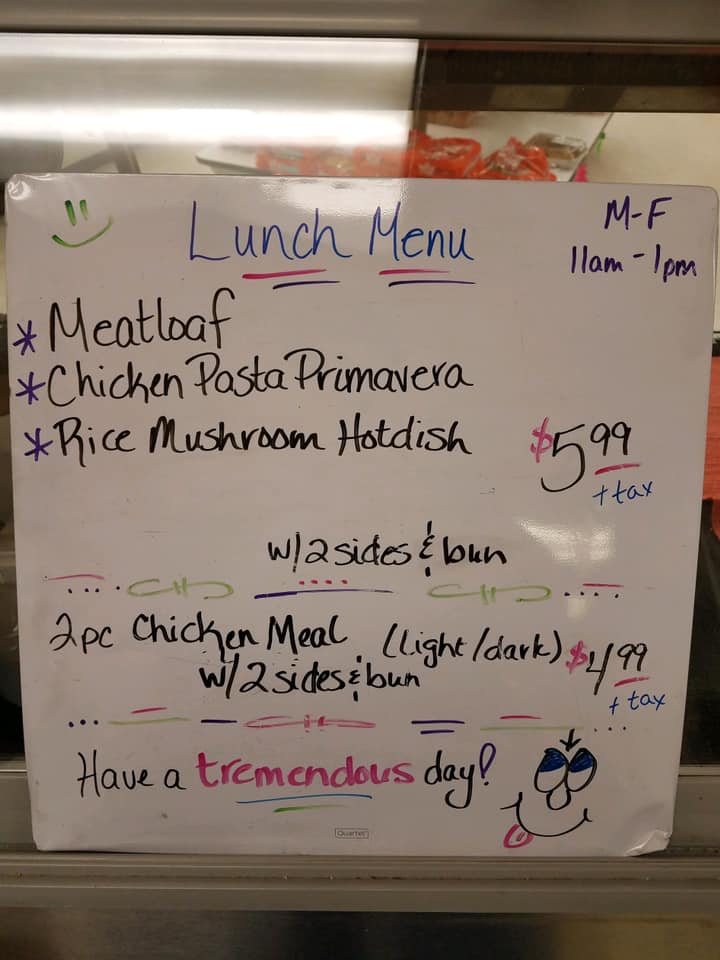 Lunch Menu
M-F
11am - 1pm
* Meatloaf
* Chicken Pasta Primavera
* Rice Mushroom Hotdish
$5.99
+ tax
w/2 sides & bun
2pc Chicken Meal (light/dark) $4.99
w/2 sides & bun
+ tax
Have a tremendous day!
Quartet